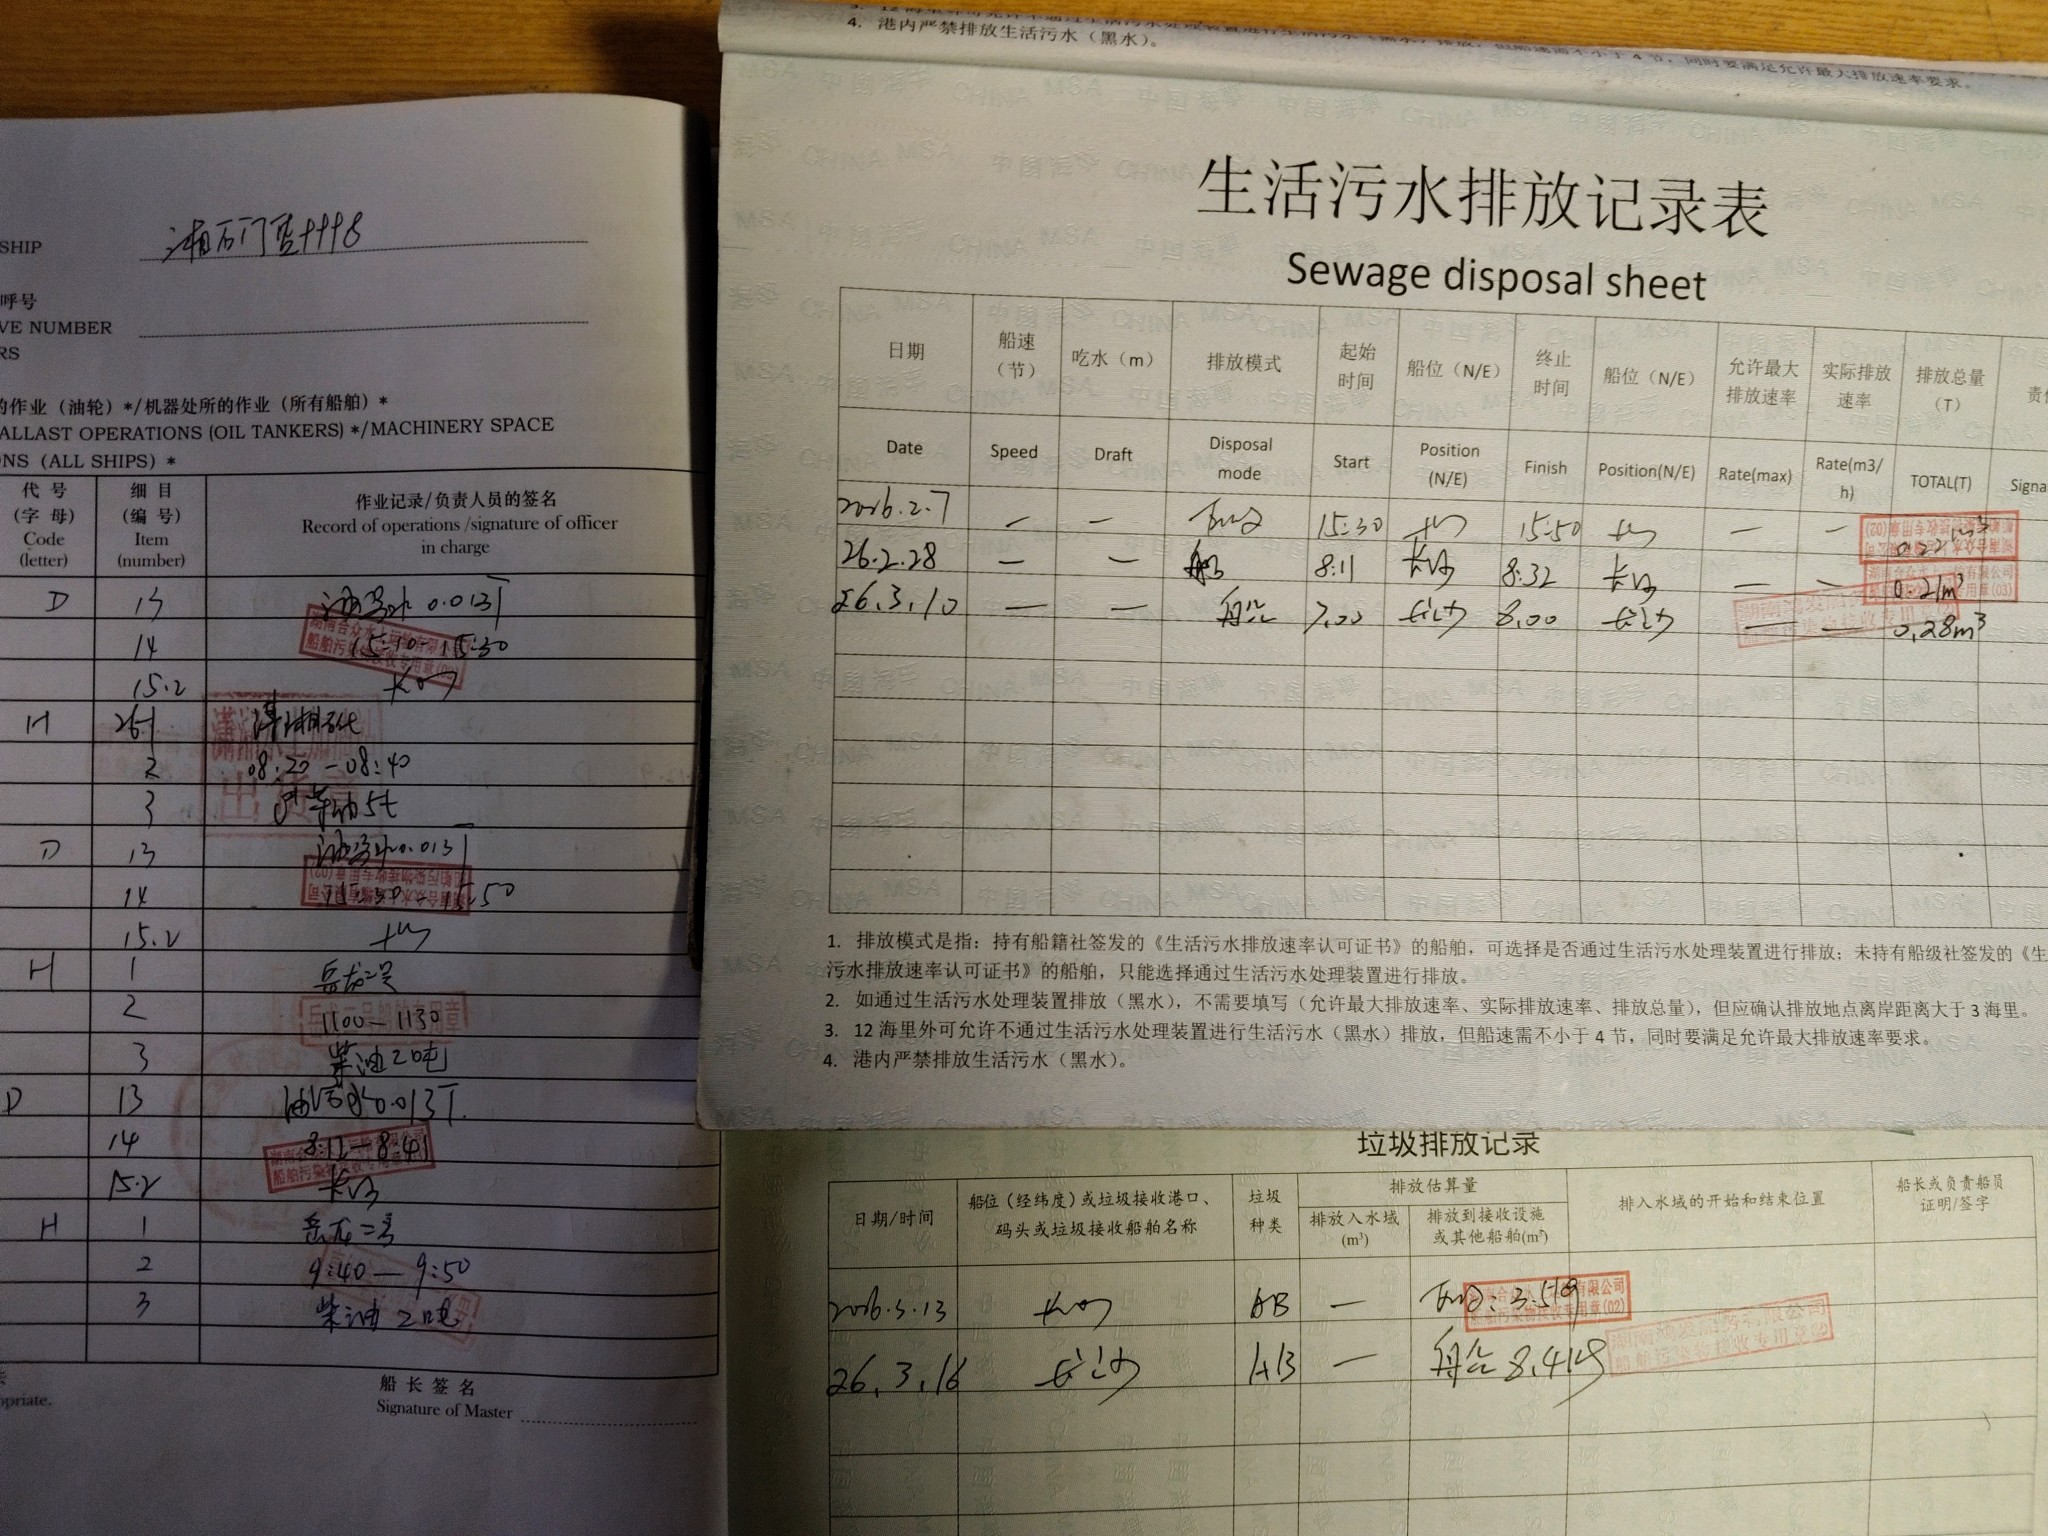 SHIP
呼号
VE NUMBER
RS
的作业（油轮）*/机器处所的作业（所有船舶）*
ALLAST OPERATIONS (OIL TANKERS) */MACHINERY SPACE
NS (ALL SHIPS) *
代 号 细 目 作业记录/负责人员的签名
(字 母) (编 号) Record of operations /signature of officer
Code Item in charge
(letter) (number)
D 13 油污水 0.013T
14 15:10-15:30
15.2 长沙
H 26.1
2 08:20-08:40
3 5t
D 13 油污水0.013T
14 15:30-15:50
15.2 长沙
H 1 岳龙二号
2 1100-1130
3 柴油20吨
D 13 油污水0.013T.
14 8:12-8:41
15.2 长沙
H 1 岳龙二号
2 9:40-9:50
3 柴油20吨
船 长 签 名
opriate.
Signature of Master
4. 港内严禁排放生活污水（黑水）。
同时要满足允许最大排放速率要求。
生活污水排放记录表
Sewage disposal sheet
日期 船速（节） 吃水（m） 排放模式 起始时间 船位（N/E） 终止时间 船位（N/E） 允许最大排放速率 实际排放速率 排放总量（T）
Date Speed Draft Disposal mode Start Position (N/E) Finish Position(N/E) Rate(max) Rate(m3/h) TOTAL(T) Signa
2026.2.7 — — 15:30 长沙 15:50 长沙 — —
26.2.28 — — 8:11 长沙 8:32 长沙 — — 0.21m³
26.3.10 — — 船公 7.00 长沙 8.00 长沙 — — 0.28m³
1. 排放模式是指：持有船籍社签发的《生活污水排放速率认可证书》的船舶，可选择是否通过生活污水处理装置进行排放；未持有船级社签发的《生
污水排放速率认可证书》的船舶，只能选择通过生活污水处理装置进行排放。
2. 如通过生活污水处理装置排放（黑水），不需要填写（允许最大排放速率、实际排放速率、排放总量），但应确认排放地点离岸距离大于 3 海里。
3. 12 海里外可允许不通过生活污水处理装置进行生活污水（黑水）排放，但船速需不小于 4 节，同时要满足允许最大排放速率要求。
4. 港内严禁排放生活污水（黑水）。
垃圾排放记录
日期/时间 船位（经纬度）或垃圾接收港口、码头或垃圾接收船舶名称 垃圾种类 排放估算量 排入水域的开始和结束位置 船长或负责船员证明/签字
排放入水域(m³) 排放到接收设施或其他船舶(m³)
2026.3.13 长沙 AB —
26.3.16 长沙 AB — 船公 8.4kg